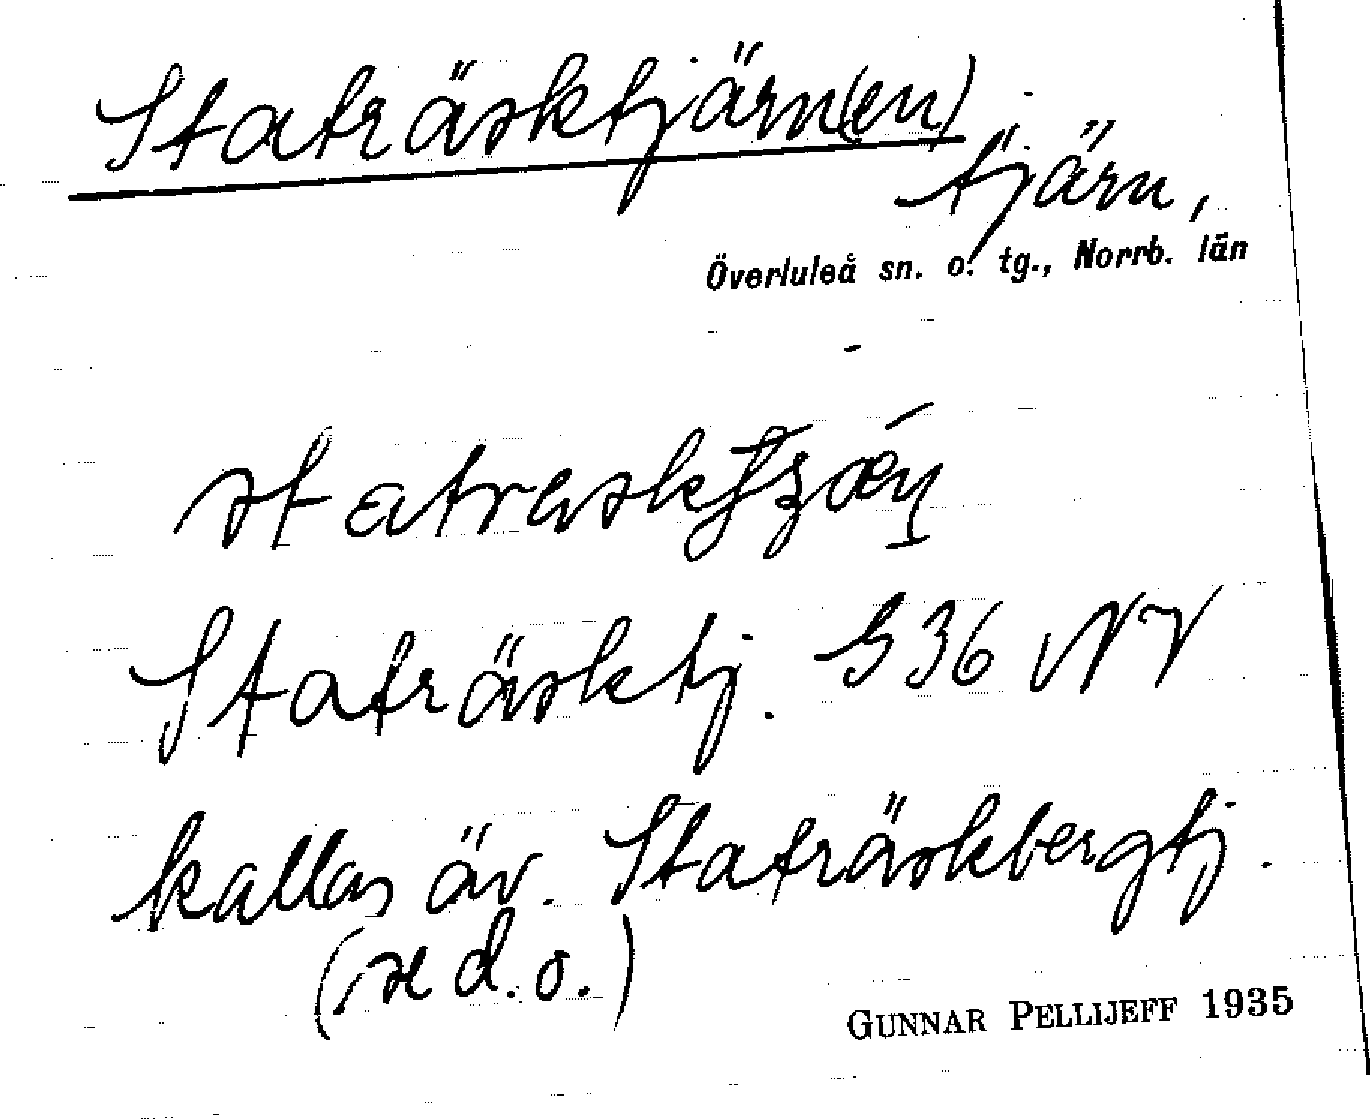 Staträsktjärn(en)
tjärn,
Överluleå sn. o. tg., Norrb. län
Staträsktj. G36 NV
kallas äv. Staträskbergtj.
(se d.o.)
GUNNAR PELLIJEFF 1935